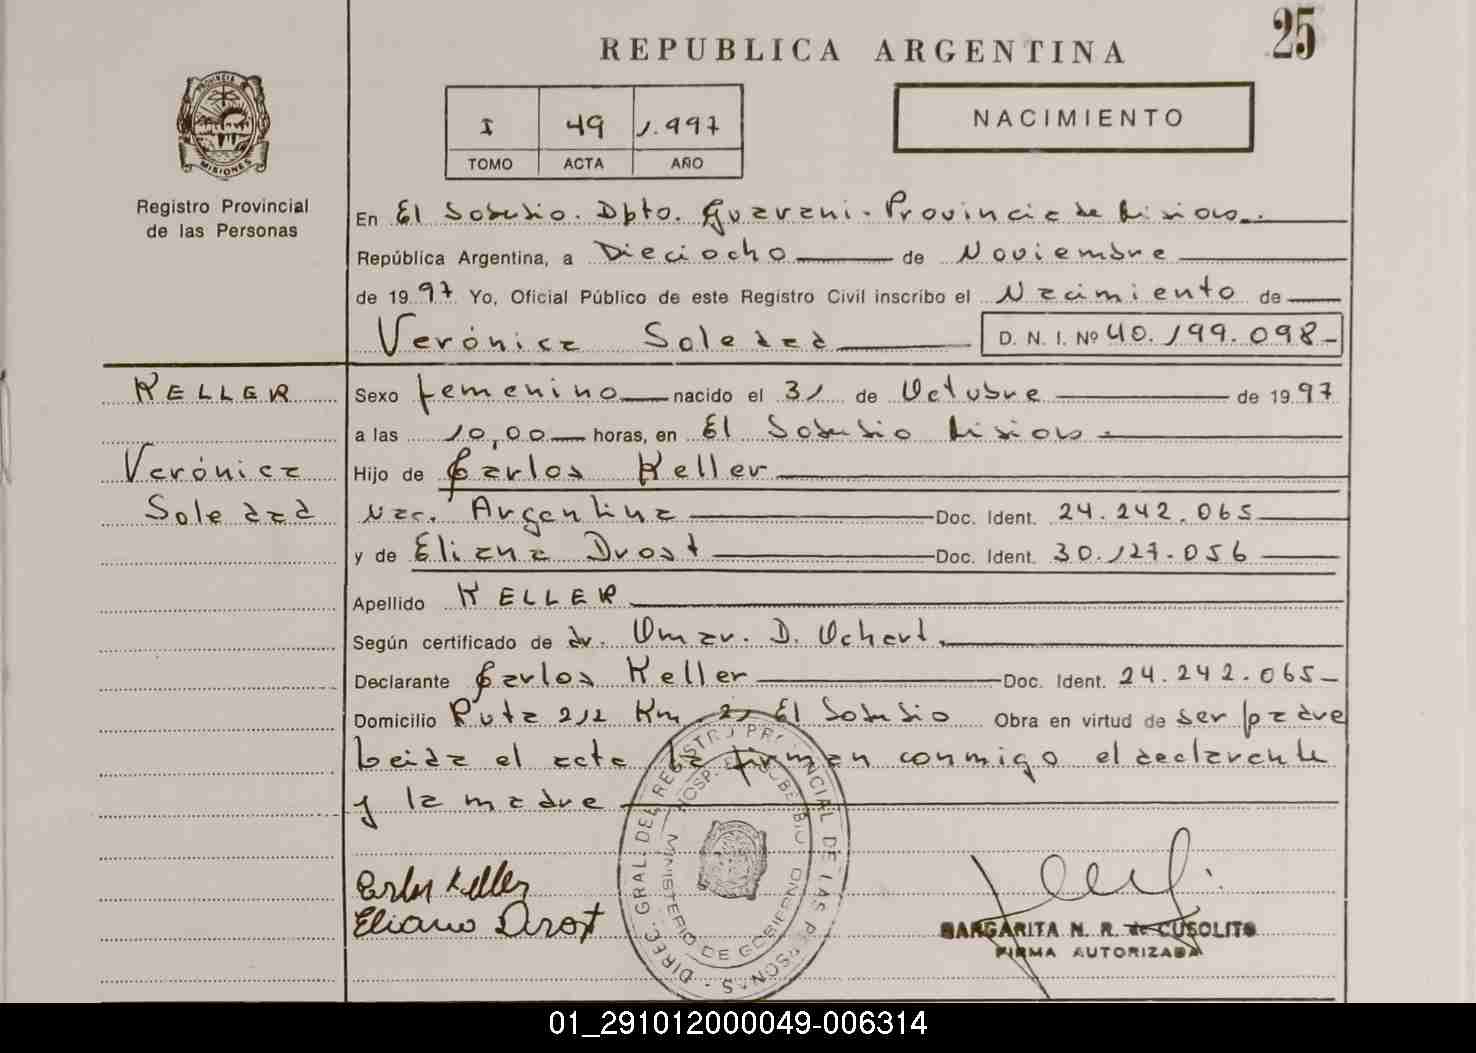 25
REPUBLICA ARGENTINA
PROVINCIA
MISIONES
Registro Provincial
de las Personas
I 49 1.997
TOMO ACTA AÑO
NACIMIENTO
En El Soberbio. Dpto. Guarani - Provincia de Misiones.
República Argentina, a Dieciocho de Noviembre
de 1997 Yo, Oficial Público de este Registro Civil inscribo el Nacimiento de
Verónica Soledad D. N. I. Nº 40.199.098-
KELLER
Verónica
Soledad
Sexo femenino nacido el 31 de Octubre de 1997
a las 10,00 horas, en El Soberbio Misiones
Hijo de Carlos Keller
Nac. Argentina Doc. Ident. 24.242.065
y de Eliana Drost Doc. Ident. 30.127.056
Apellido KELLER
Según certificado de dr. Omar. D. Ochert.
Declarante Carlos Keller Doc. Ident. 24.242.065-
Domicilio Ruta 212 Km. El Soberbio Obra en virtud de ser padre
Leida el acta la firman conmigo el declarante
y la madre
Carlos Keller
Eliana Drost
DIREC. GRAL. DEL REGISTRO PROVINCIAL DE LAS PERSONAS
HOSP. EL SOBERBIO
MINISTERIO DE GOBIERNO
MARGARITA N. R. de CUSOLITO
FIRMA AUTORIZADA
01_291012000049-006314